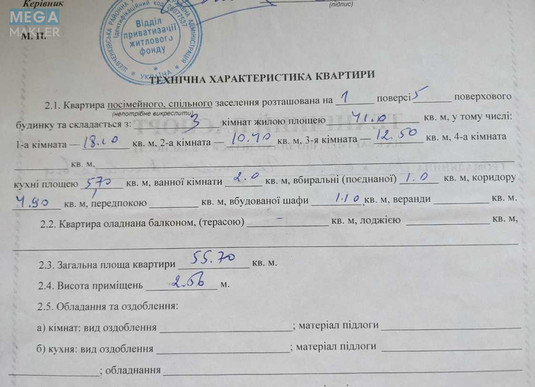 MEGA
MAKLER
Керівник
(підпис)
М. П.
Відділ
приватизації
житлового
фонду
УКРАЇНА
ТЕХНІЧНА ХАРАКТЕРИСТИКА КВАРТИРИ
2.1. Квартира посімейного, спільного заселення розташована на 1 поверсі 5 поверхового
(непотрібне викреслити)
будинку та складається з: 3 кімнат жилою площею 41.0 кв. м, у тому числі:
1-а кімната — 18.10 кв. м, 2-а кімната — 10.40 кв. м, 3-я кімната — 12.50 кв. м, 4-а кімната
кв. м,
кухні площею 5,70 кв. м, ванної кімнати 2.0 кв. м, вбиральні (поєднаної) 1.0 кв. м, коридору
4.90 кв. м, передпокою кв. м, вбудованої шафи 1.10 кв. м, веранди кв. м,
2.2. Квартира оладнана балконом, (терасою) – кв. м, лоджією кв. м,
2.3. Загальна площа квартири 55.70 кв. м.
2.4. Висота приміщень 2.56 м.
2.5. Обладання та оздоблення:
а) кімнат: вид оздоблення ; матеріал підлоги
б) кухня: вид оздоблення ; матеріал підлоги
; обладнання